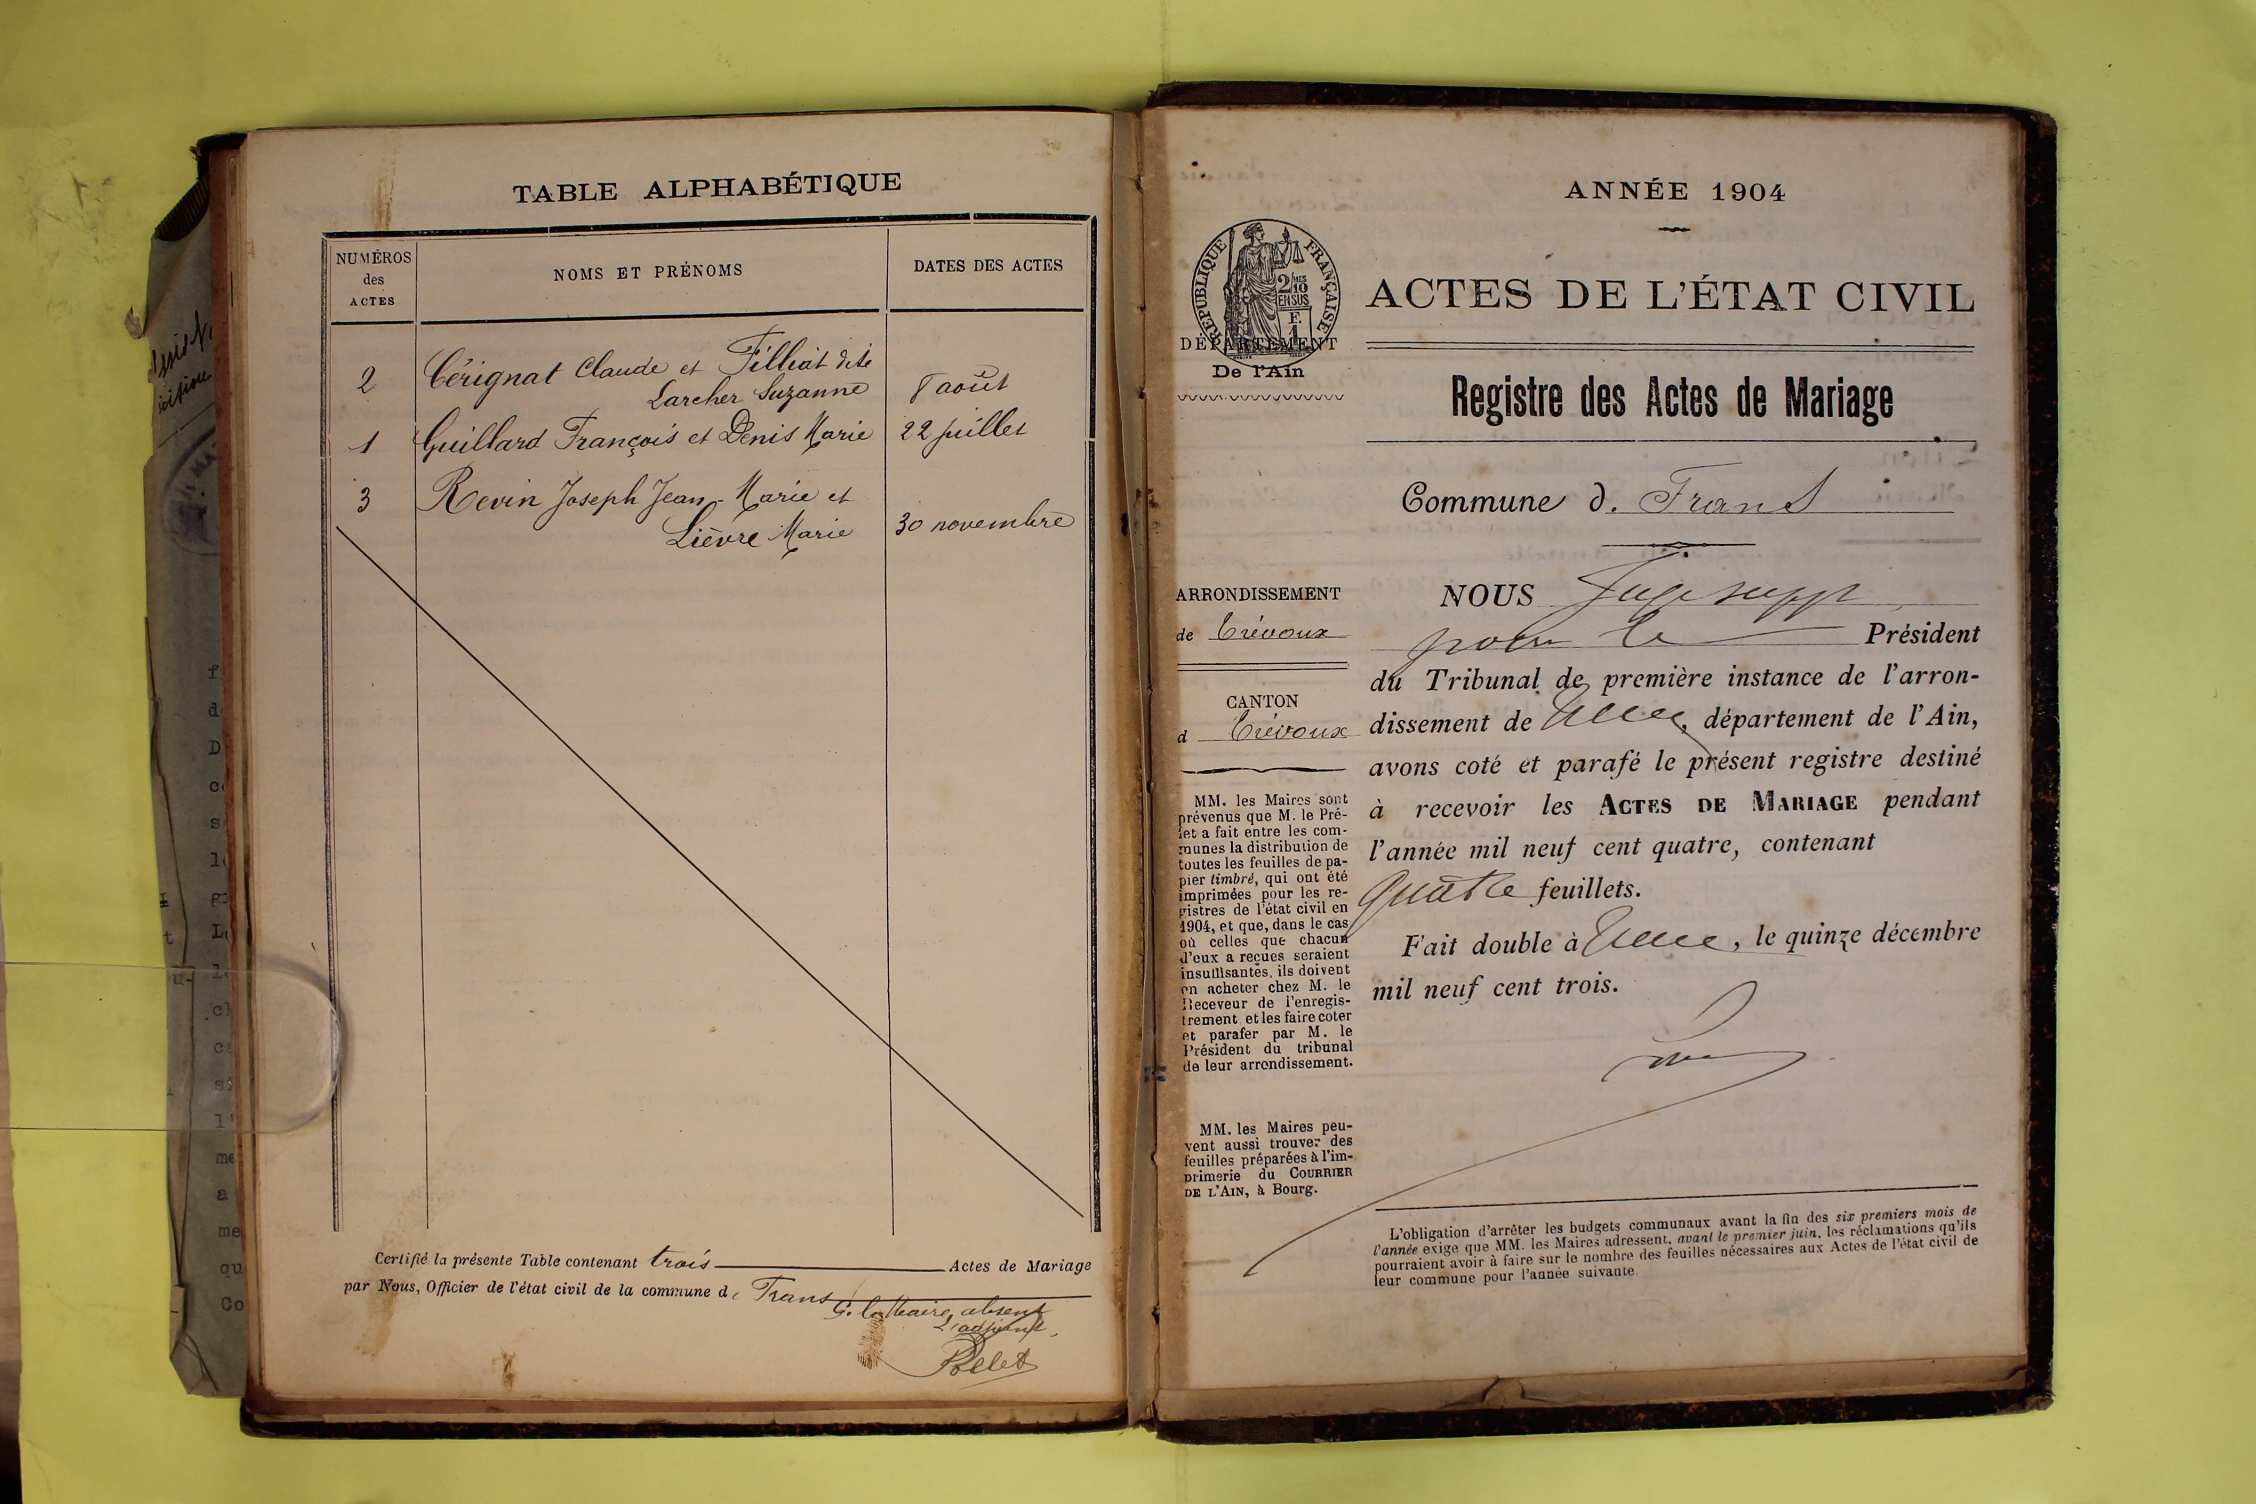 TABLE ALPHABÉTIQUE
NUMÉROS
des
ACTES
NOMS ET PRÉNOMS
DATES DES ACTES
2 Cérignat Claude et Filliat dite
Larcher Suzanne 8 août
1 Guillard François et Denis Marie 22 juillet
3 Revin Joseph Jean-Marie et
Lièvre Marie 30 novembre
Certifié la présente Table contenant trois Actes de Mariage
par Nous, Officier de l'état civil de la commune de Frans
P. le Maire absent
L'adjoint,
ANNÉE 1904
RÉPUBLIQUE FRANÇAISE
2/10
EN SUS
F.
1
DÉPARTEMENT
De l'Ain
ACTES DE L'ÉTAT CIVIL
Registre des Actes de Mariage
Commune d. Frans
ARRONDISSEMENT
de Trévoux
CANTON
d Trévoux
MM. les Maires sont
prévenus que M. le Pré-
fet a fait entre les com-
munes la distribution de
toutes les feuilles de pa-
pier timbré, qui ont été
imprimées pour les re-
gistres de l'état civil en
1904, et que, dans le cas
où celles que chacun
d'eux a reçues seraient
insuffisantes, ils doivent
en acheter chez M. le
Receveur de l'enregis-
trement et les faire coter
et parafer par M. le
Président du tribunal
de leur arrondissement.
MM. les Maires peu-
vent aussi trouver des
feuilles préparées à l'im-
primerie du COURRIER
DE L'AIN, à Bourg.
NOUS Juge suppt
pour le Président
du Tribunal de première instance de l'arron-
dissement de Trévoux, département de l'Ain,
avons coté et parafé le présent registre destiné
à recevoir les ACTES DE MARIAGE pendant
l'année mil neuf cent quatre, contenant
quatre feuillets.
Fait double à Trévoux, le quinze décembre
mil neuf cent trois.
L'obligation d'arrêter les budgets communaux avant la fin des six premiers mois de
l'année exige que MM. les Maires adressent, avant le premier juin, les réclamations qu'ils
pourraient avoir à faire sur le nombre des feuilles nécessaires aux Actes de l'état civil de
leur commune pour l'année suivante.